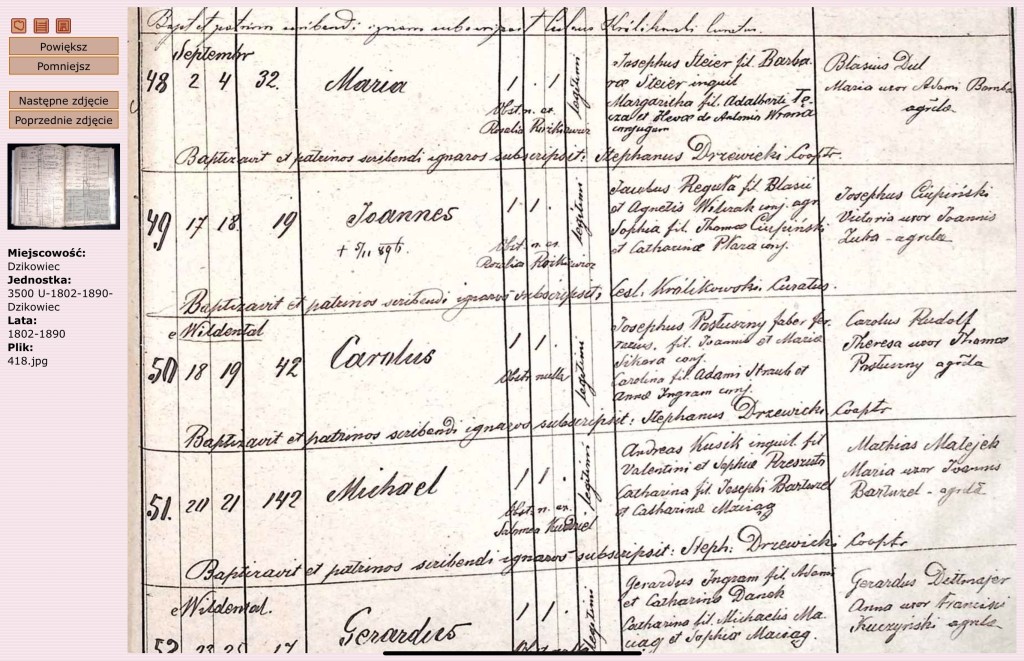 Powiększ
Pomniejsz
Następne zdjęcie
Poprzednie zdjęcie
Miejscowość:
Dzikowiec
Jednostka:
3500 U-1802-1890-
Dzikowiec
Lata:
1802-1890
Plik:
418.jpg
Bapt et patrinos scribendi ignaros subscripsit Królikowski Curatus.
Septembr
48 2 4 32. Maria 1 . 1 . legitimi
Obst. n. ex.
Rosalia
Josephus Steier fil Barba
ræ Steier inquil
Margaritha fil. Adalberti Tę-
cza et Hevæ de Antonio Wrona
conjugum
Blasius Dul
Maria uxor Adami Bomba
agrlæ
Baptizavit et patrinos scribendi ignaros subscripsit: Stephanus Drzewicki Cooptr.
49 17 18. 19 Joannes 1 1 . legitimi
+ 5/11 896
Obst. n. ex.
Rosalia
Jacobus Reguła fil Blasii
et Agnetis conj. agr
Sophia fil. Thomæ Ciupiński
et Catharinæ Płaza conj.
Josephus Ciupiński
Victoria uxor Joannis
Zuba - agrlæ
Baptizavit et patrinos scribendi ignaros subscripsit: Cesl. Królikowski Curatus.
e Wildental
50 18 19 42 Carolus 1 1 . legitimi
Obstr. nulla
Josephus Posłuszny faber fer-
rarius, fil. Joannis et Maria
Sikora conj.
Carolina fil Adami Straub et
Annæ Ingram conj.
Carolus Rudolf
Theresa uxor Thomæ
Posłuszny agrlæ
Baptizavit et patrinos scribendi ignaros subscripsit: Stephanus Drzewicki Cooptr
51. 20 21 142 Michael 1 1 . legitimi
Obst. n. ex.
Salomea
Andreas Kusik inquil. fil
Valentini et Sophiæ Rzeszut
Catharina fil. Josephi Bartuzel
et Catharinæ Maciąg
Mathias Matejek
Maria uxor Joannis
Bartuzel - agrlæ
Baptizavit et patrinos scribendi ignaros subscripsit: Steph: Drzewicki Cooptr
e Wildental.
52 17 Gerardus 1 1 . legitimi
Gerardus Ingram fil Adami
et Catharinæ Danek
Catharina fil. Michaelis Ma-
ciąg et Sophiæ Maciąg.
Gerardus Dettmajer
Anna uxor Francisci
Kuczyński agrlæ